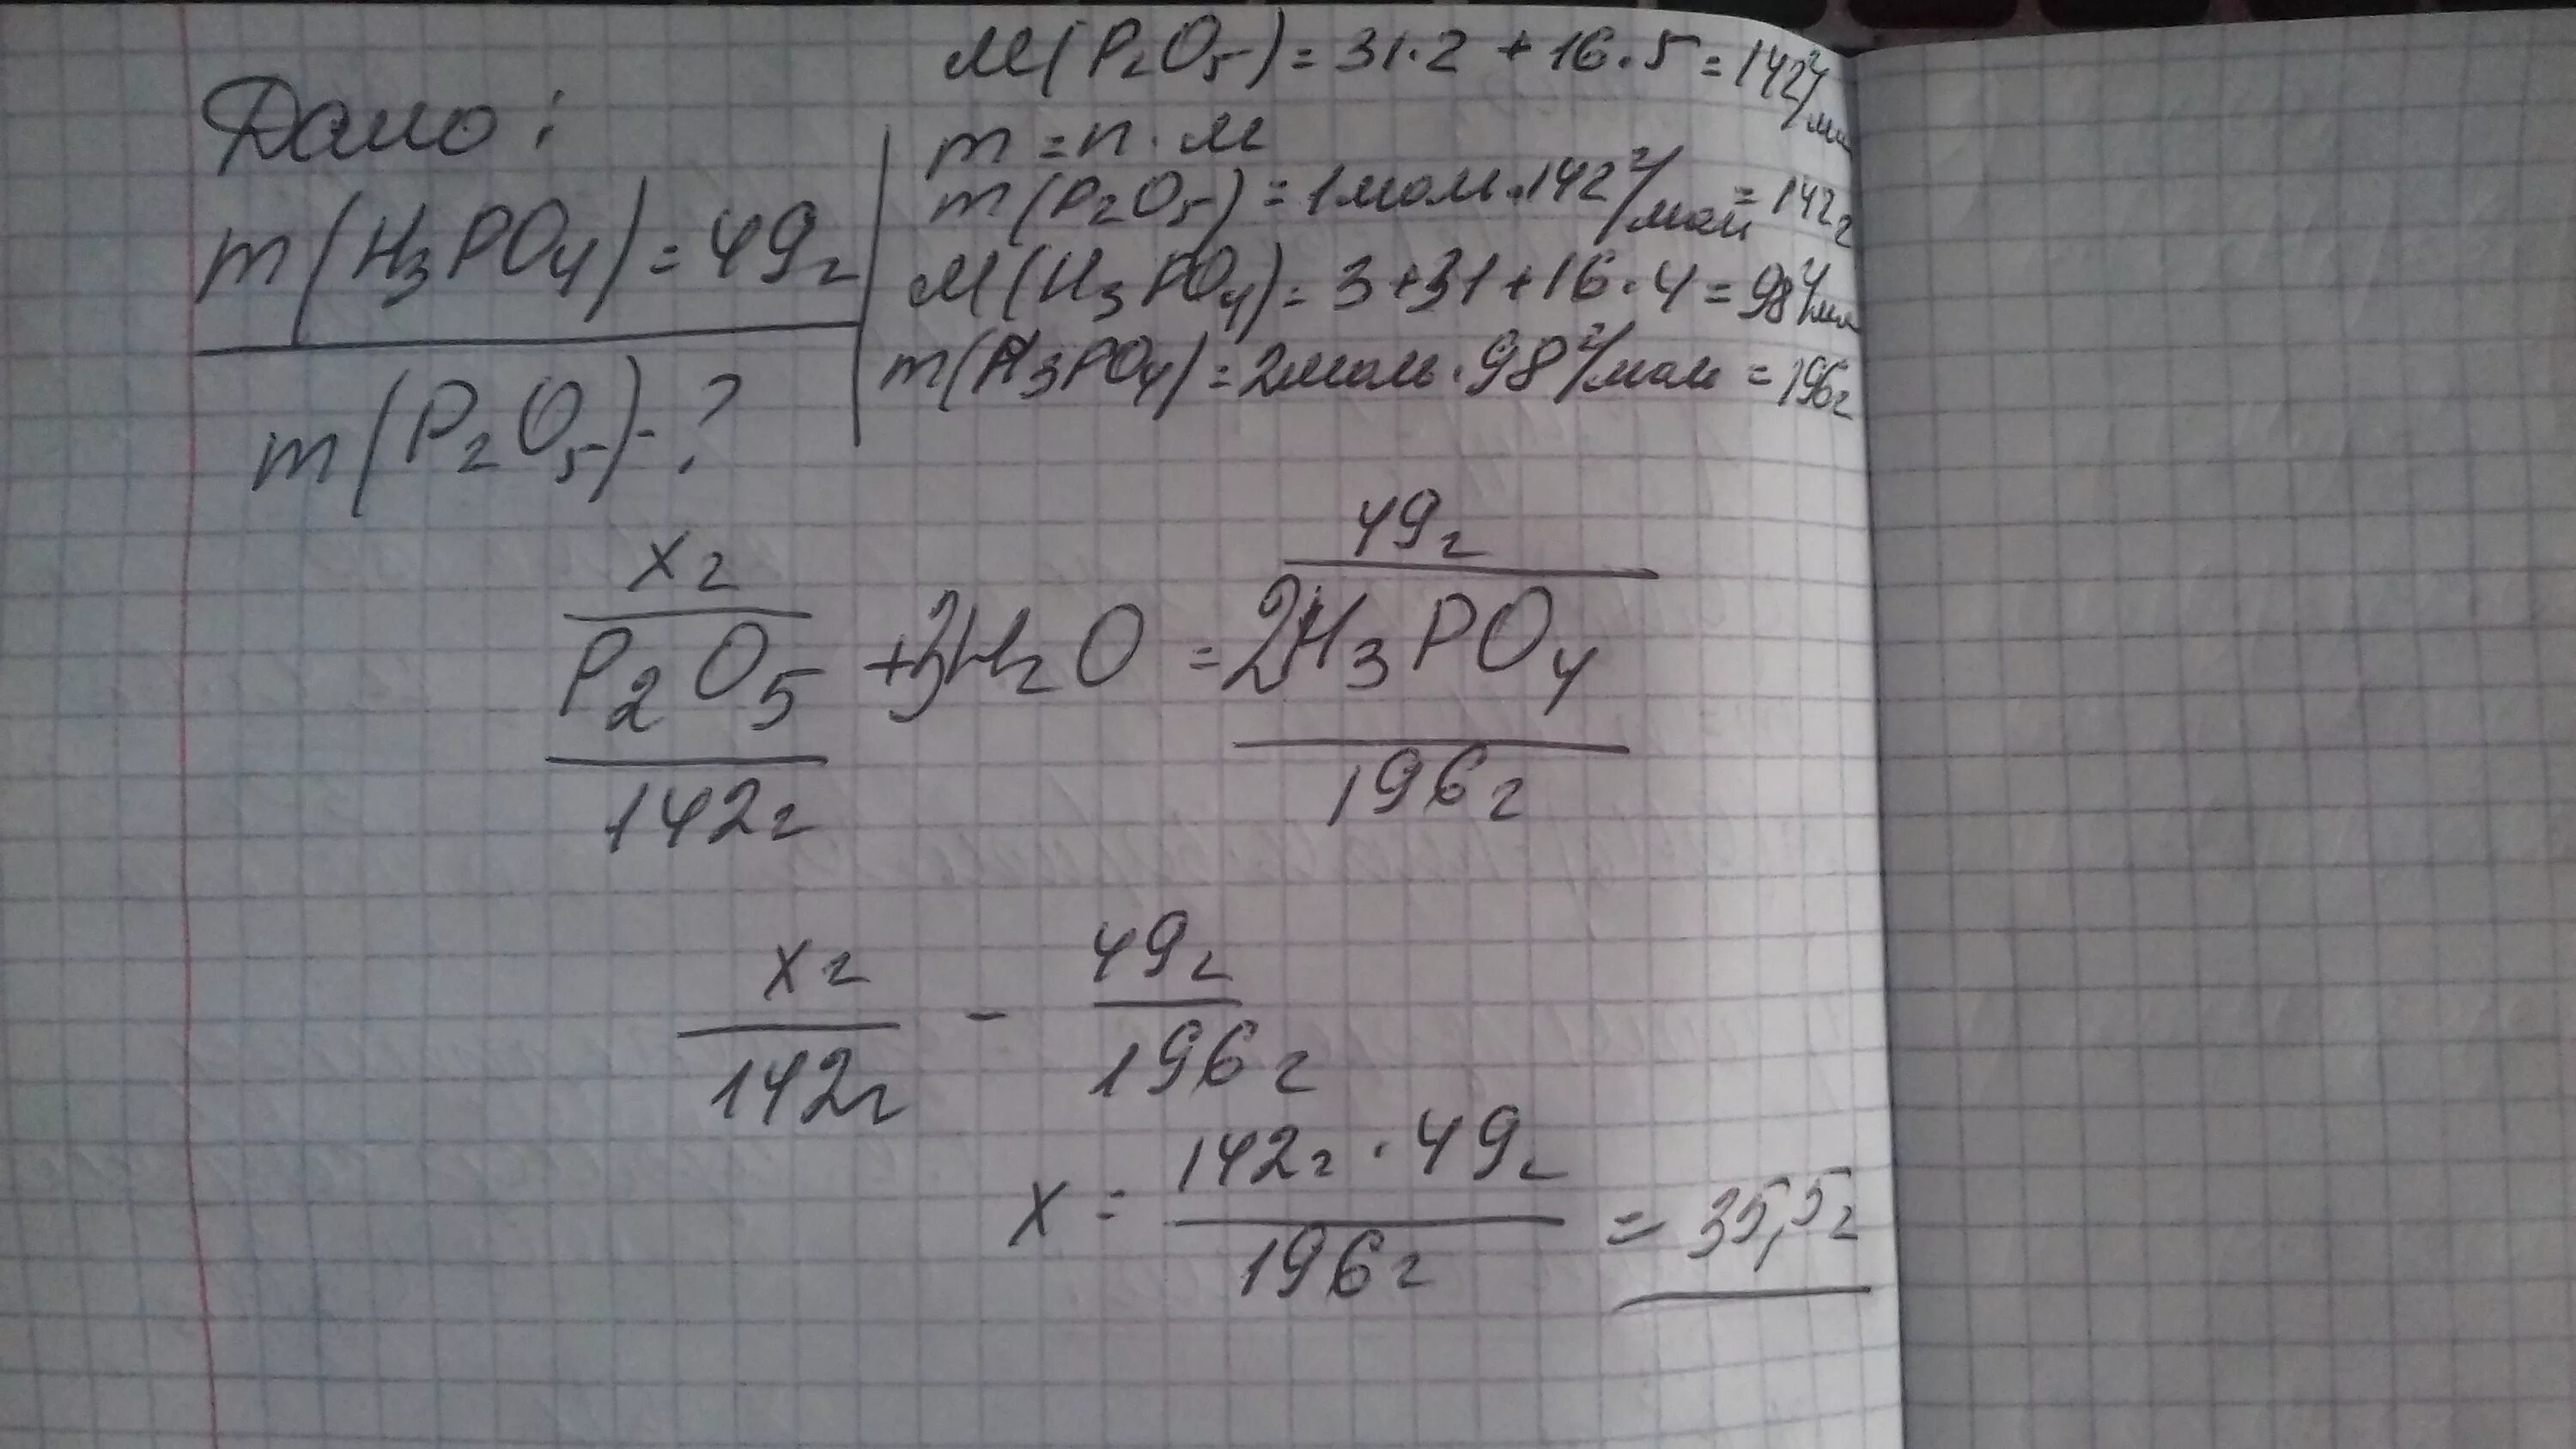 Дано:
m(H₃PO₄)=49г
m(P₂O₅)-?
M(P₂O₅)=31·2+16·5=142г/мол
m=n·M
m(P₂O₅)=1моль·142г/моль=142г
M(H₃PO₄)=3+31+16·4=98г/мол
m(H₃PO₄)=2моль·98г/моль=196г
xг 49г
P₂O₅+3H₂O=2H₃PO₄
142г 196г
xг - 49г
142г 196г
142г·49г
x= =35,5г
196г